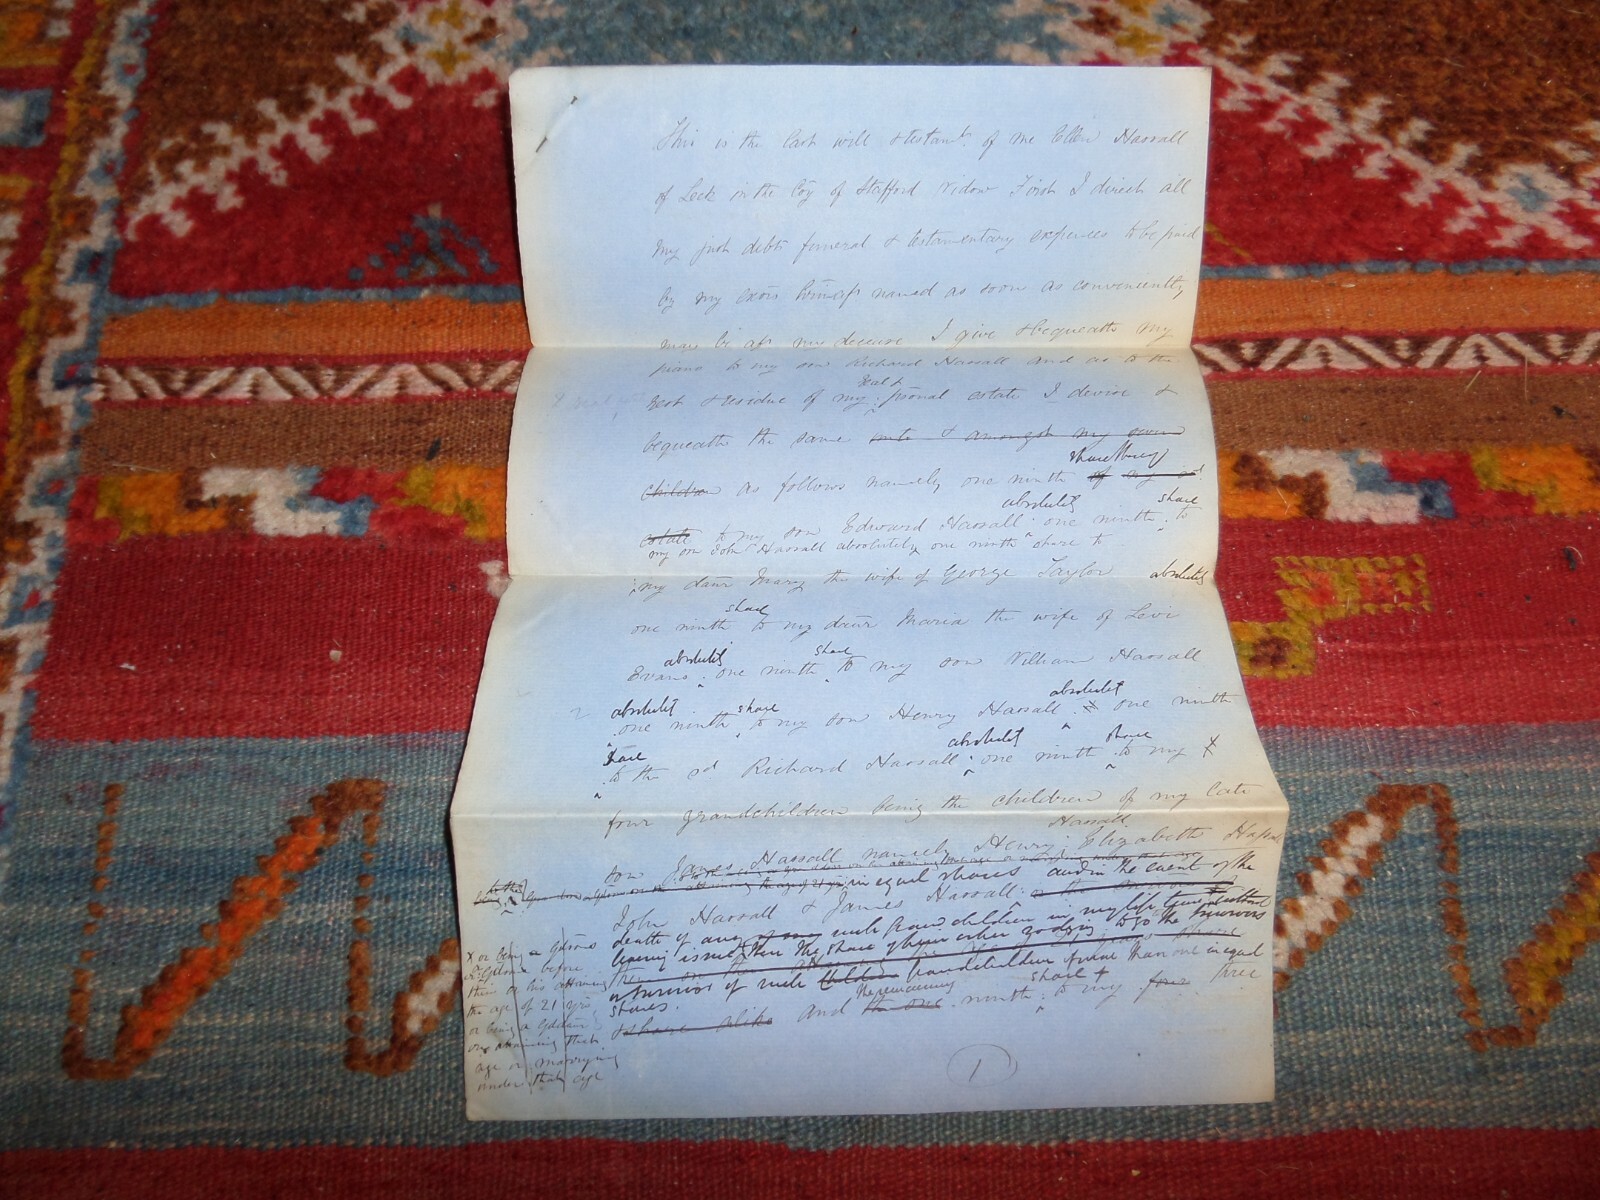 This is the last will & testamt. of me Ellen Hassall
of Leek in the Coy of Stafford Widow First I direct all
my just debts funeral & testamentary expenses to be paid
by my exors hrinafr named as soon as conveniently
may be afr my decease I give & bequeath my
piano to my son Richard Hassall and as to the
real &
rest & residue of my psonal estate I devise &
bequeath the same unto & amongst my seven
share thereof
children as follows namely one ninth of my sd
absolutely share
estate to my son Edward Hassall one ninth to
my son John Hassall absolutely one ninth share to
my daur Mary the wife of George Taylor absolutely
share
one ninth to my daur Maria the wife of Levi
absolutely share
Evans one ninth to my son William Hassall
absolutely share absolutely
one ninth to my son Henry Hassall & one ninth
share absolutely share
to the sd Richard Hassall one ninth to my
four grandchildren being the children of my late
Hassall
son James Hassall namely Henry Elizabeth Hassall
in equal shares and in the event of the
John Hassall & James Hassall
death of any of my such grandchildren in my lifetime without
leaving issue then the share of him her or them so dying to go to the survivors
or survivor of such children grandchildren if more than one in equal
shares.
the remaining share
& share alike and the one ninth to my four three
x or being a gdsons
or gdson before
their or his attaining
the age of 21 yrs
or being a gdaur
attaining that
age or marrying
under that age
1